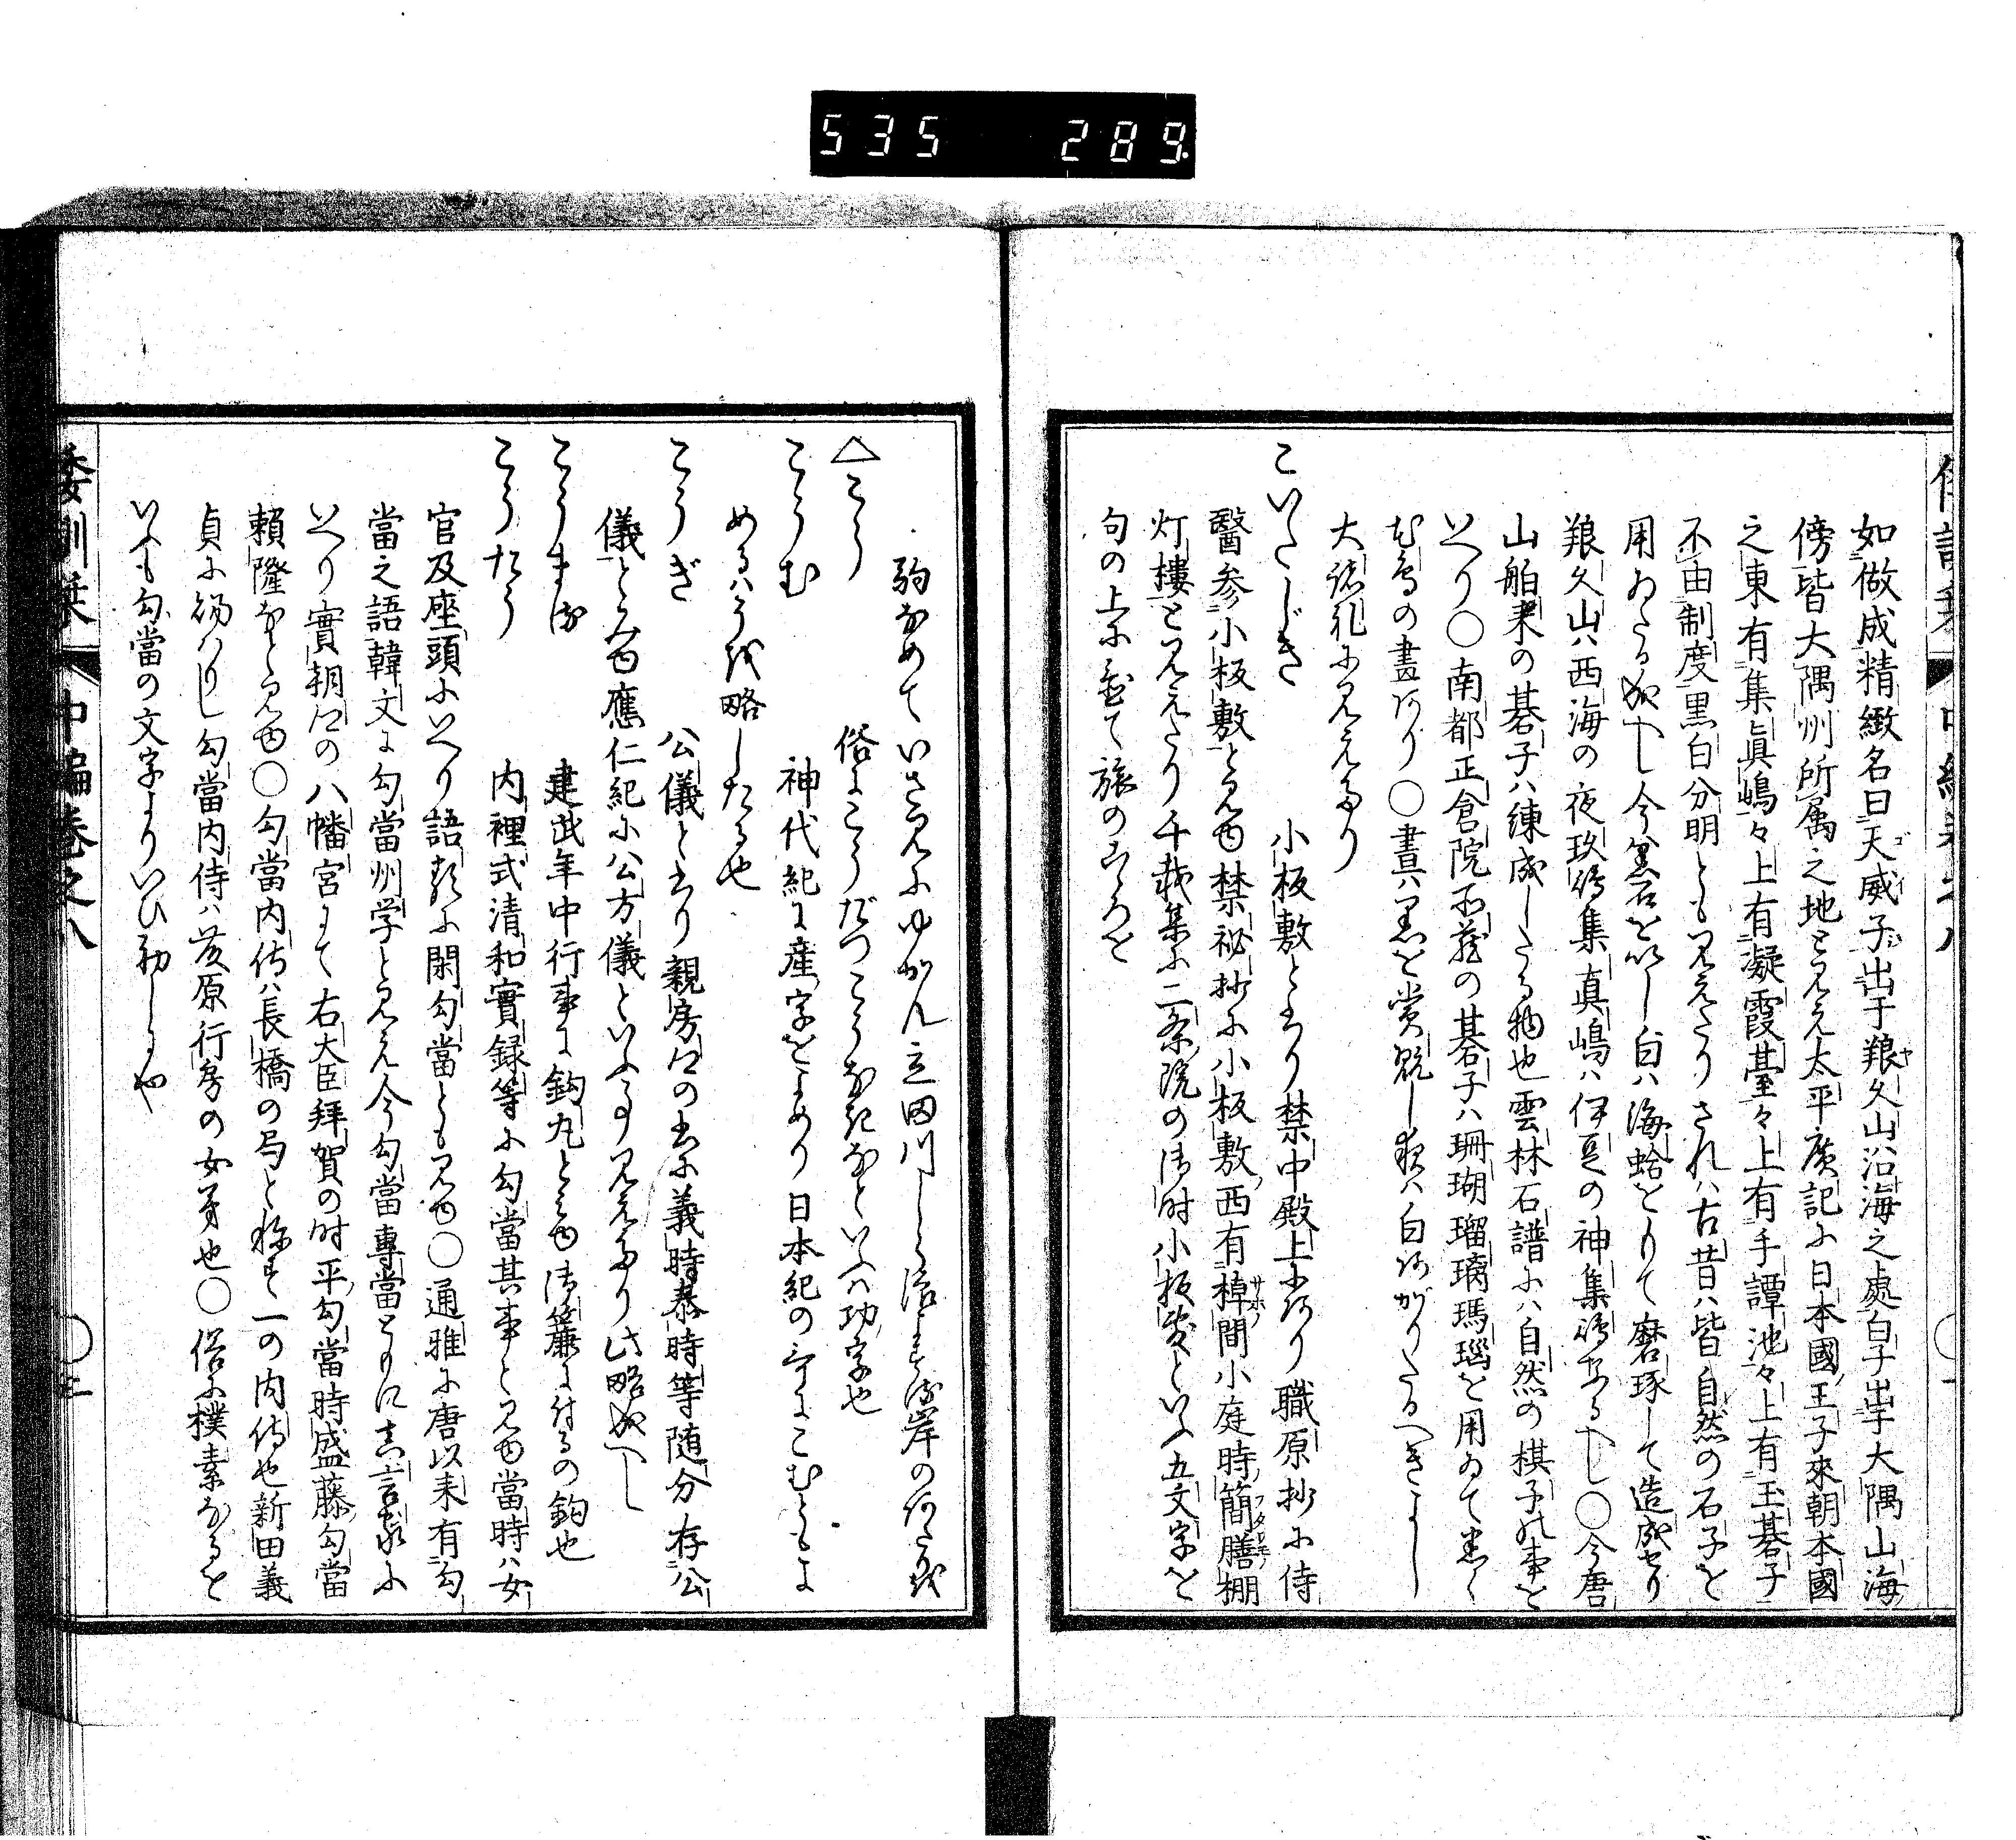 535 289
如做成精緻名曰天威子出于狼久山沿海之處白子出于大隅山海
傍皆大隅州所属之地とみえ太平廣記に日本國王子來朝本國
之東有集眞嶋々上有凝霞臺々上有手譚池々上有玉碁子
不由制度黒白分明ともみえたりされハ古昔ハ皆自然の石子を
用ゐたる成へし今黒石を以し白ハ海蛤をもて磨琢して造成せり
狼久山ハ西海の夜玖嶋集真嶋ハ伊豆の神集嶋なるへし〇今唐
山舶来の碁子ハ練成したる物也雲林石譜にハ自然の棋子の事を
いへり〇南都正倉院所藏の碁子ハ珊瑚瑠璃瑪瑙を用ゐて悉く
むなの畫あり〇晝ハ黒を賞翫し夜ハ白あがりたるへきよし
大諸礼にみえたり
こいたじき 小板敷とかけり禁中殿上にあり職原抄に侍
醫参小板敷とみゆ禁秘抄に小板敷西有棹間小庭時簡膳棚
灯樓とみえたり千載集に二条院の御時小板敷といふ五文字を
句の上に置て旅のこゝろを
駒なめていさみにゆかん立田川しら浪よする岸のあたりを
△こう 俗にこうだつこうなきなといふハ功字也
こうむ 神代紀に産字をよめり日本紀の哥にこむともよ
めるハうを略したる也
こうぎ 公儀とかけり親房卿の書に義時泰時等随分存公
儀とみゆ應仁紀に公方儀といふ事みえたり此略成へし
こうまる 建武年中行事に鈎丸とみゆ御簾に付るの鈎也
こうたう 内裡式清和實録等に勾當其事とみゆ當時ハ女
官及座頭にいへり語類に閑勾當ともみゆ〇通雅に唐以来有勾
當之語韓文に勾當州学とみえ今勾當專當ともに真言家に
いへり實朝卿の八幡宮にて右大臣拜賀の時平勾當時盛藤勾當
頼隆なとみゆ〇勾當内侍ハ長橋の局と称す一の内侍也新田義
貞に賜ハりし勾當内侍ハ藤原行房の女弟也〇俗に樸素なるを
いふも勾當の文字よりいひ初しにや
倭訓栞 中編巻之八